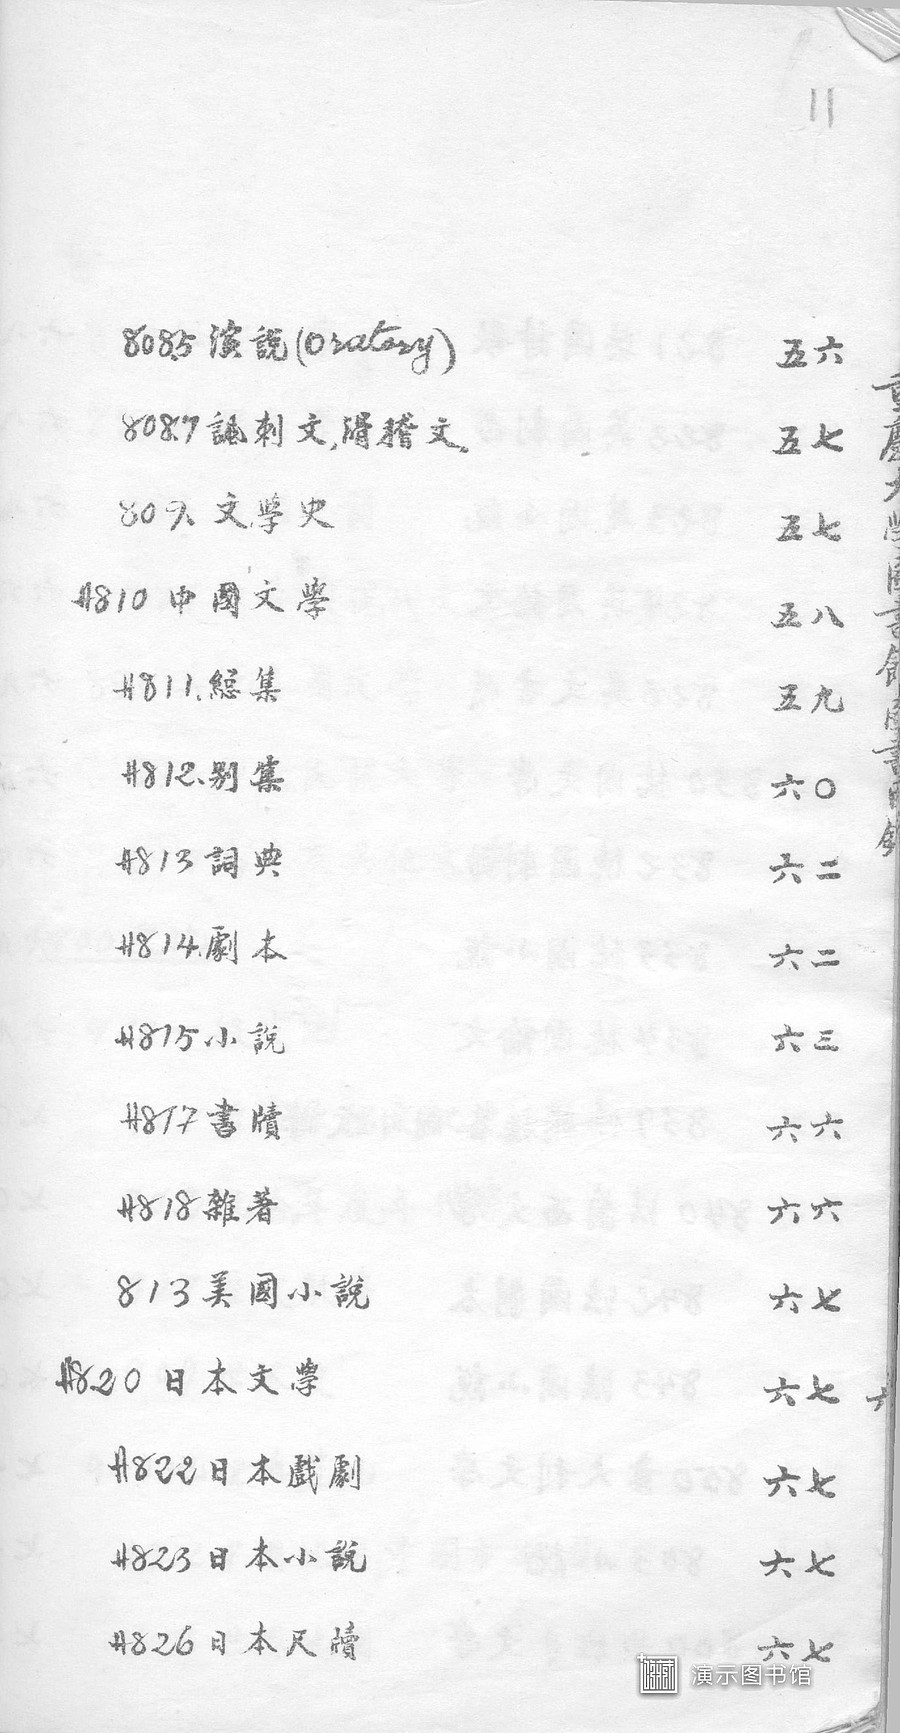 11
808.5 演說(Oratory) 五六
808.7 諷刺文,滑稽文. 五七
809. 文學史 五七
A810 中國文學 五八
A811.總集 五九
A812.别集 六〇
A813 詞典 六二
A814.劇本 六二
A815 小說 六三
A817 書牘 六六
A818 雜著 六六
813 美國小說 六七
A820 日本文學 六七
A822 日本戲劇 六七
A823 日本小說 六七
A826 日本尺牘 六七
重慶大學圖書館圖書目錄
演示图书馆